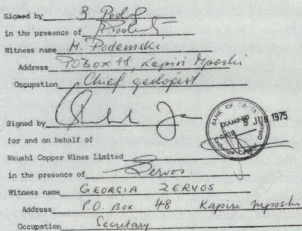 Signed by
in the presence of
Witness name M. Podemski
Address POBox 48 Kapiri Mposhi
Occupation Chief geologist
Signed by
for and on behalf of
Mkushi Copper Mines Limited
in the presence of Zervos.
Witness name GEORGIA ZERVOS
Address P.O. Box 48 Kapiri Mposhi
Occupation Secretary
BANK OF
JUN 1975